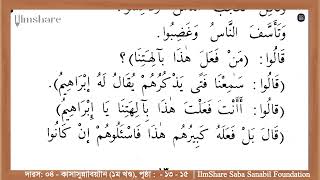 Ilmshare
وَتَأَسَّفَ النَّاسُ وَغَضِبُوا.
قَالُوا: (مَنْ فَعَلَ هٰذَا بِآلِهَتِنَا)؟
(قَالُوا: سَمِعْنَا فَتًى يَذْكُرُهُمْ يُقَالُ لَهُ إِبْرَاهِيمُ).
(قَالُوا: أَأَنْتَ فَعَلْتَ هٰذَا بِآلِهَتِنَا يَا إِبْرَاهِيمُ)
(قَالَ بَلْ فَعَلَهُ كَبِيرُهُمْ هٰذَا فَاسْئَلُوهُمْ إِنْ كَانُوا
দারস: ০৪ - কাসাসুন্নাবিয়্যীন (১ম খন্ড), পৃষ্ঠা : - ১৩ - ১৫ | IlmShare Saba Sanabil Foundation